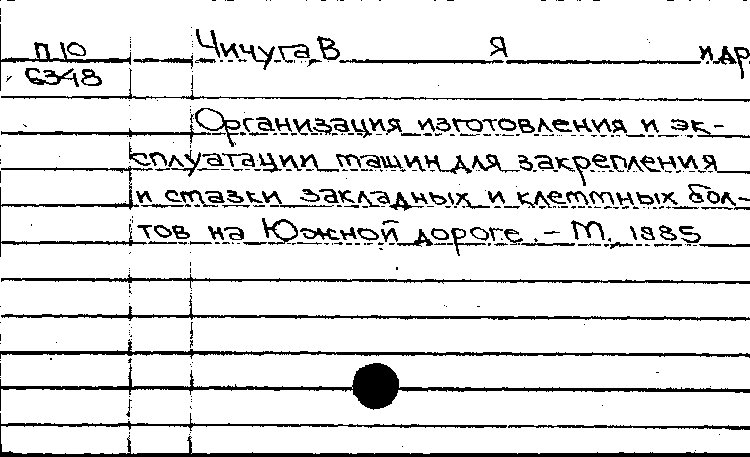 П10 Чичуга В Я и др
6348
Организация изготовления и эк-
сплуатации машин для закрепления
и смазки закладных и клеммных бол-
тов на Южной дороге. - М., 1985